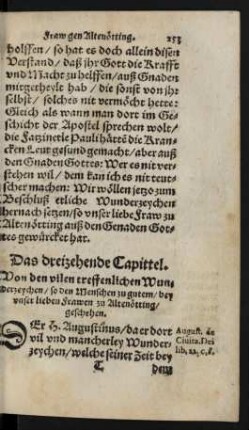 Fraw gen Altenötting. 253
holffen / so hat es doch allein disen
Verstand / daß jhr Gott die Krafft
vnd Macht zu helffen / auß Gnaden
mitgetheylt hab / die sonst von jhr
selbst / solches nit vermöcht hette:
Gleich als wann man dort im Ge-
schicht der Apostel sprechen wolt /
die Fatzinetle Pauli hätte die Kran-
cken Leut gesund gemacht / aber auß
den Gnaden Gottes: Wer es nit ver-
stehen wil / dem kan ich es nit teut-
scher machen: Wir wöllen jetzo zum
Beschluß etliche Wunderzeychen
hernach setzen / so vnser liebe Fraw zu
Altenötting auß den Genaden Got-
tes gewürcket hat.
Das dreizehende Capittel.
Von den vilen treffenlichen Wun-
derzeychen / so den Menschen zu gutem / bey
vnser lieben Frawen zu Altenötting /
geschehen.
DEr H. Augustinus / da er dort
vil vnd mancherley Wunder-
zeychen / welche seiner Zeit bey
August. de
Ciuita. Dei
lib. 22. c. 8.
T dem